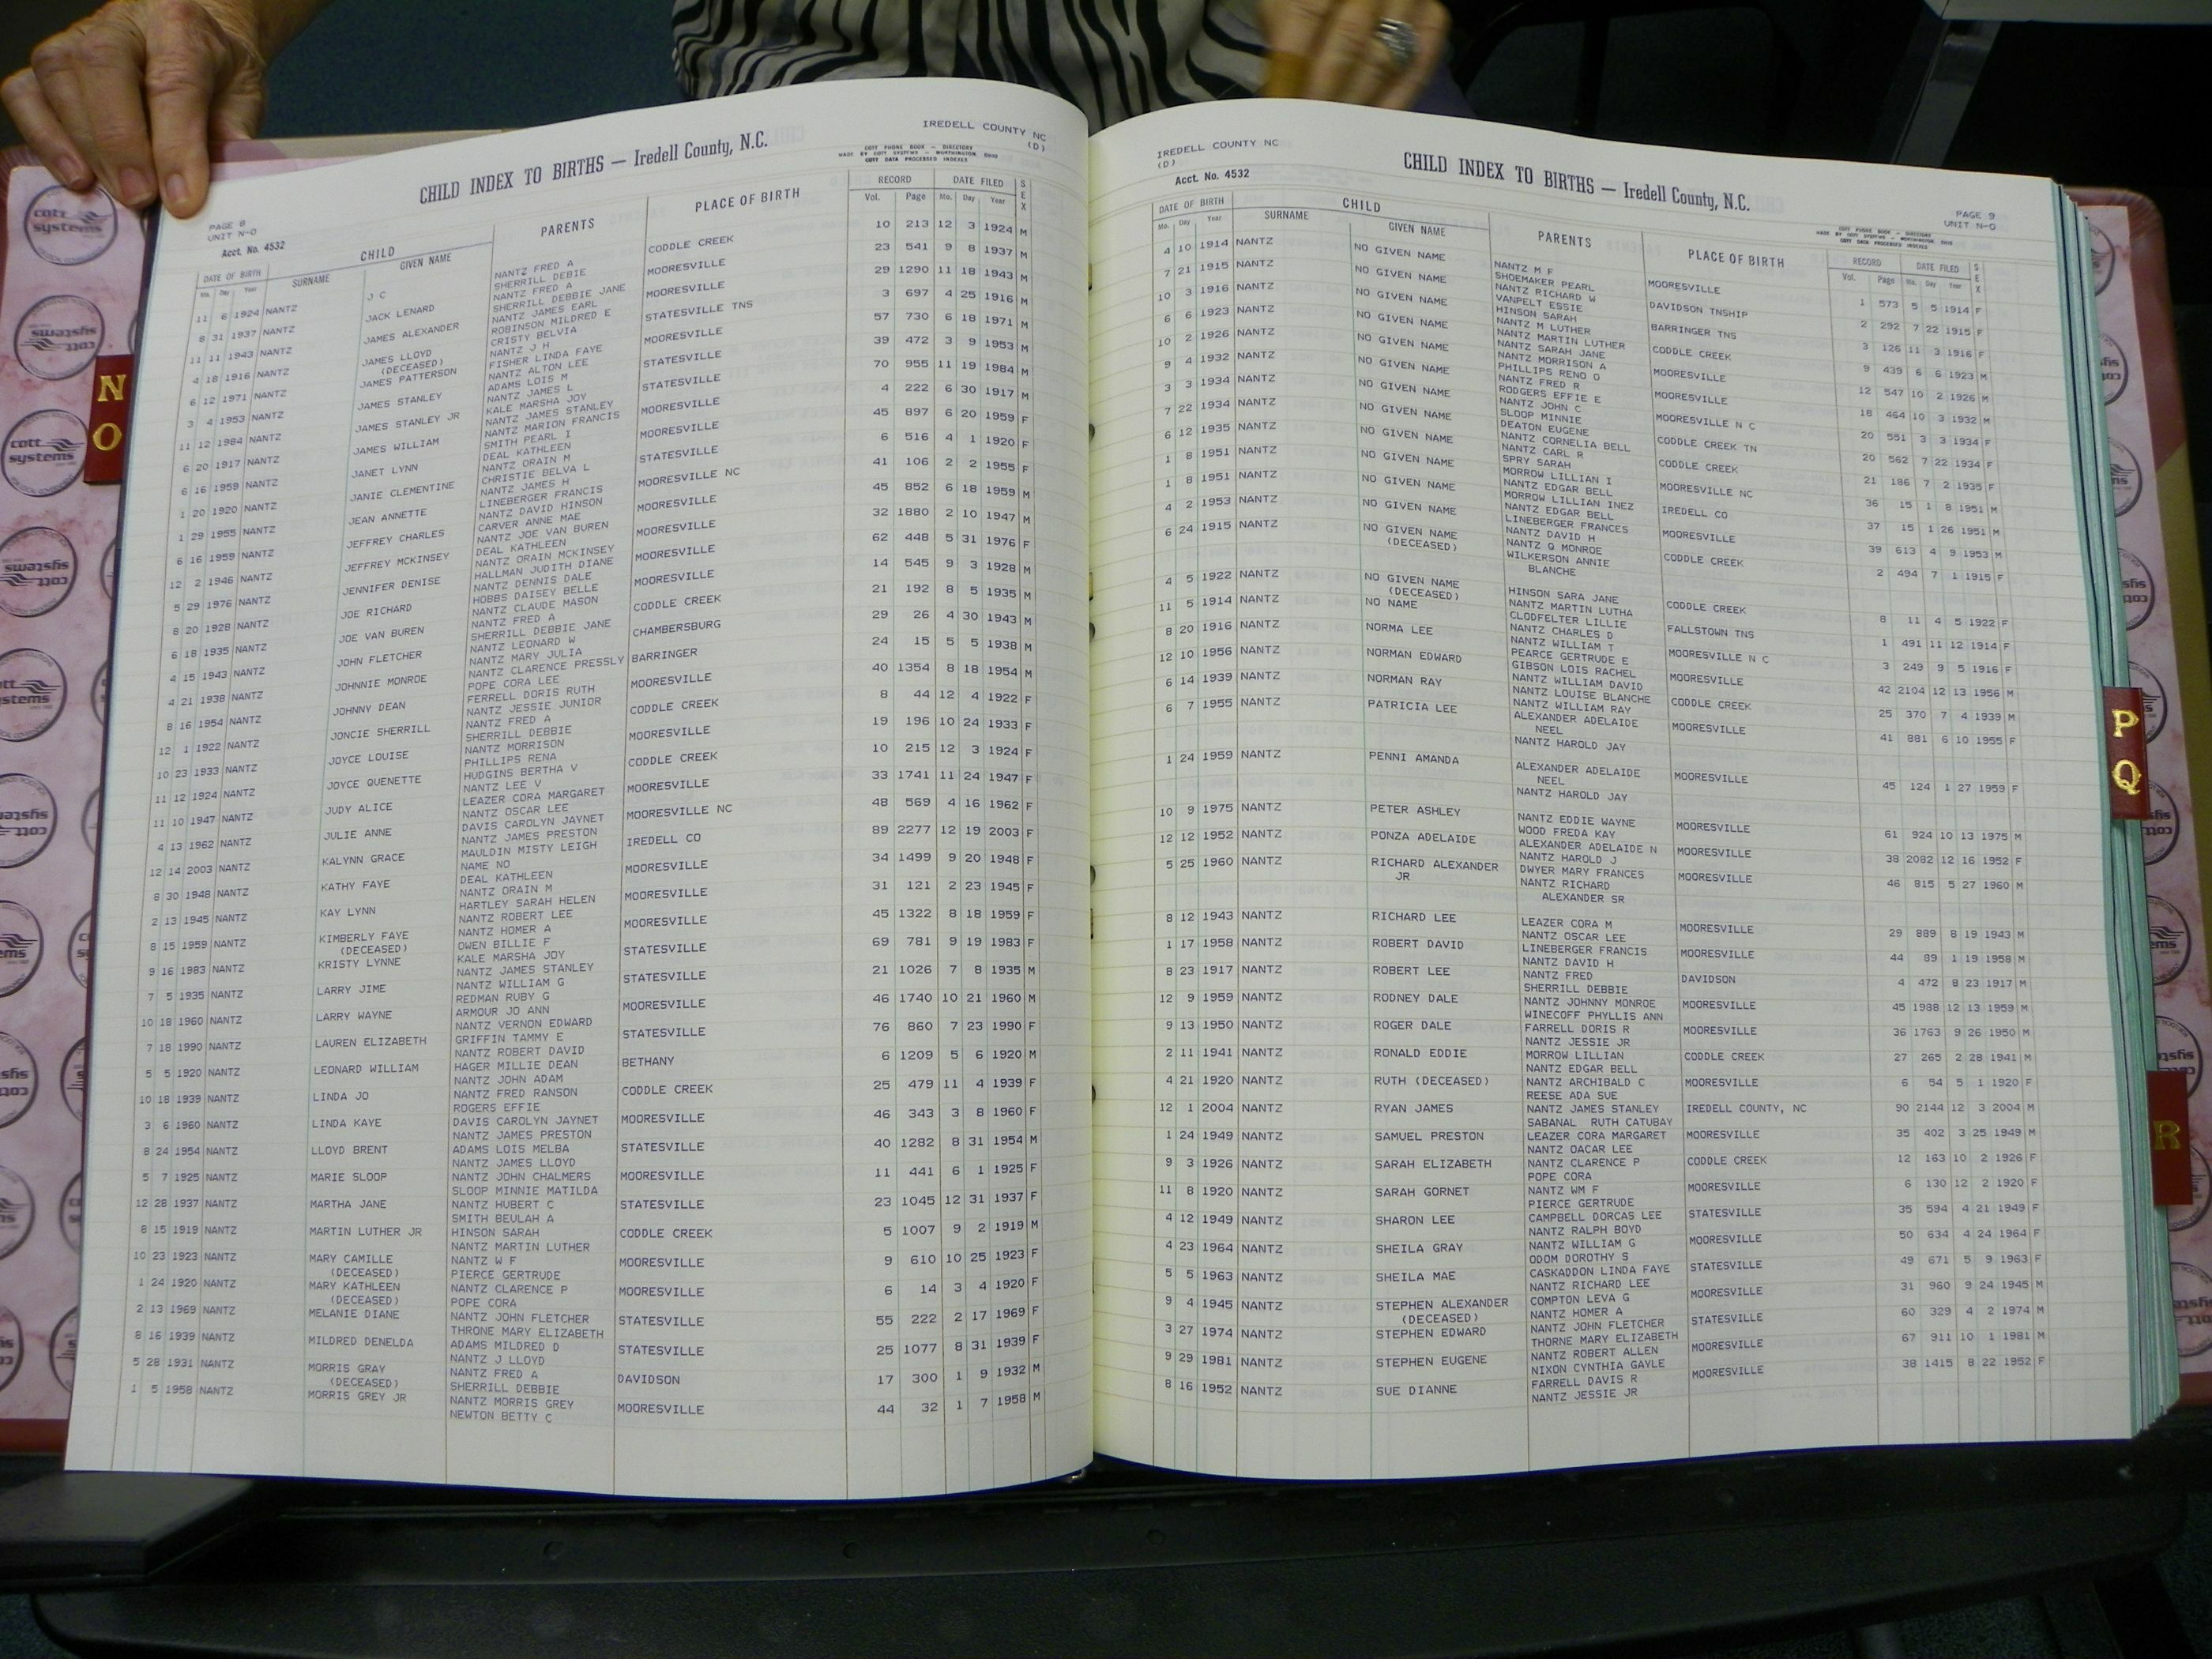 IREDELL COUNTY NC
(D)
CHILD INDEX TO BIRTHS — Iredell County, N.C.
COTT PHONE BOOK — DIRECTORY
MADE BY COTT SYSTEMS — WORTHINGTON, OHIO
COTT DATA PROCESSED INDEXES
PAGE 8
UNIT N-O
Acct. No. 4532
DATE OF BIRTH CHILD PARENTS PLACE OF BIRTH RECORD DATE FILED SEX
Mo. Day Year SURNAME GIVEN NAME Vol. Page Mo. Day Year
11 6 1924 NANTZ J C NANTZ FRED A CODDLE CREEK 10 213 12 3 1924 M
SHERRILL DEBIE
8 31 1937 NANTZ JACK LENARD NANTZ FRED A MOORESVILLE 23 541 9 8 1937 M
SHERRILL DEBBIE JANE
11 11 1943 NANTZ JAMES ALEXANDER NANTZ JAMES EARL MOORESVILLE 29 1290 11 18 1943 M
ROBINSON MILDRED E
4 18 1916 NANTZ JAMES LLOYD CRISTY BELVIA STATESVILLE TNS 3 697 4 25 1916 M
(DECEASED) NANTZ J H
6 12 1971 NANTZ JAMES PATTERSON FISHER LINDA FAYE MOORESVILLE 57 730 6 18 1971 M
NANTZ ALTON LEE
3 4 1953 NANTZ JAMES STANLEY ADAMS LOIS M STATESVILLE 39 472 3 9 1953 M
NANTZ JAMES L
11 12 1984 NANTZ JAMES STANLEY JR KALE MARSHA JOY STATESVILLE 70 955 11 19 1984 M
NANTZ JAMES STANLEY
6 20 1917 NANTZ JAMES WILLIAM NANTZ MARION FRANCIS MOORESVILLE 4 222 6 30 1917 M
SMITH PEARL I
6 16 1959 NANTZ JANET LYNN DEAL KATHLEEN MOORESVILLE 45 897 6 20 1959 F
NANTZ ORAIN M
1 20 1920 NANTZ JANIE CLEMENTINE CHRISTIE BELVA L STATESVILLE 6 516 4 1 1920 F
NANTZ JAMES H
1 29 1955 NANTZ JEAN ANNETTE LINEBERGER FRANCIS MOORESVILLE NC 41 106 2 2 1955 F
NANTZ DAVID HINSON
6 16 1959 NANTZ JEFFREY CHARLES CARVER ANNE MAE MOORESVILLE 45 852 6 18 1959 M
NANTZ JOE VAN BUREN
12 2 1946 NANTZ JEFFREY MCKINSEY DEAL KATHLEEN MOORESVILLE 32 1880 2 10 1947 M
NANTZ ORAIN MCKINSEY
5 29 1976 NANTZ JENNIFER DENISE HALLMAN JUDITH DIANE MOORESVILLE 62 448 5 31 1976 F
NANTZ DENNIS DALE
8 20 1928 NANTZ JOE RICHARD HOBBS DAISEY BELLE MOORESVILLE 14 545 9 3 1928 M
NANTZ CLAUDE MASON
6 18 1935 NANTZ JOE VAN BUREN NANTZ FRED A CODDLE CREEK 21 192 8 5 1935 M
SHERRILL DEBBIE JANE
4 15 1943 NANTZ JOHN FLETCHER NANTZ LEONARD W CHAMBERSBURG 29 26 4 30 1943 M
NANTZ MARY JULIA
4 21 1938 NANTZ JOHNNIE MONROE NANTZ CLARENCE PRESSLY BARRINGER 24 15 5 5 1938 M
POPE CORA LEE
8 16 1954 NANTZ JOHNNY DEAN FERRELL DORIS RUTH MOORESVILLE 40 1354 8 18 1954 M
NANTZ JESSIE JUNIOR
12 1 1922 NANTZ JONCIE SHERRILL NANTZ FRED A CODDLE CREEK 8 44 12 4 1922 F
SHERRILL DEBBIE
10 23 1933 NANTZ JOYCE LOUISE NANTZ MORRISON MOORESVILLE 19 196 10 24 1933 F
PHILLIPS RENA
11 12 1924 NANTZ JOYCE QUENETTE HUDGINS BERTHA V CODDLE CREEK 10 215 12 3 1924 F
NANTZ LEE V
11 10 1947 NANTZ JUDY ALICE LEAZER CORA MARGARET MOORESVILLE 33 1741 11 24 1947 F
NANTZ OSCAR LEE
4 13 1962 NANTZ JULIE ANNE DAVIS CAROLYN JAYNET MOORESVILLE NC 48 569 4 16 1962 F
NANTZ JAMES PRESTON
12 14 2003 NANTZ KALYNN GRACE MAULDIN MISTY LEIGH IREDELL CO 89 2277 12 19 2003 F
NAME NO
8 30 1948 NANTZ KATHY FAYE DEAL KATHLEEN MOORESVILLE 34 1499 9 20 1948 F
NANTZ ORAIN M
2 13 1945 NANTZ KAY LYNN HARTLEY SARAH HELEN MOORESVILLE 31 121 2 23 1945 F
NANTZ ROBERT LEE
8 15 1959 NANTZ KIMBERLY FAYE NANTZ HOMER A MOORESVILLE 45 1322 8 18 1959 F
(DECEASED) OWEN BILLIE F
9 16 1983 NANTZ KRISTY LYNNE KALE MARSHA JOY STATESVILLE 69 781 9 19 1983 F
NANTZ JAMES STANLEY
7 5 1935 NANTZ LARRY JIME NANTZ WILLIAM G STATESVILLE 21 1026 7 8 1935 M
REDMAN RUBY G
10 18 1960 NANTZ LARRY WAYNE ARMOUR JO ANN MOORESVILLE 46 1740 10 21 1960 M
NANTZ VERNON EDWARD
7 18 1990 NANTZ LAUREN ELIZABETH GRIFFIN TAMMY E STATESVILLE 76 860 7 23 1990 F
NANTZ ROBERT DAVID
5 5 1920 NANTZ LEONARD WILLIAM HAGER MILLIE DEAN BETHANY 6 1209 5 6 1920 M
NANTZ JOHN ADAM
10 18 1939 NANTZ LINDA JO NANTZ FRED RANSON CODDLE CREEK 25 479 11 4 1939 F
ROGERS EFFIE
3 6 1960 NANTZ LINDA KAYE DAVIS CAROLYN JAYNET MOORESVILLE 46 343 3 8 1960 F
NANTZ JAMES PRESTON
8 24 1954 NANTZ LLOYD BRENT ADAMS LOIS MELBA STATESVILLE 40 1282 8 31 1954 M
NANTZ JAMES LLOYD
5 7 1925 NANTZ MARIE SLOOP NANTZ JOHN CHALMERS MOORESVILLE 11 441 6 1 1925 F
SLOOP MINNIE MATILDA
12 28 1937 NANTZ MARTHA JANE NANTZ HUBERT C STATESVILLE 23 1045 12 31 1937 F
SMITH BEULAH A
8 15 1919 NANTZ MARTIN LUTHER JR HINSON SARAH CODDLE CREEK 5 1007 9 2 1919 M
NANTZ MARTIN LUTHER
10 23 1923 NANTZ MARY CAMILLE NANTZ W F MOORESVILLE 9 610 10 25 1923 F
(DECEASED) PIERCE GERTRUDE
1 24 1920 NANTZ MARY KATHLEEN NANTZ CLARENCE P MOORESVILLE 6 14 3 4 1920 F
(DECEASED) POPE CORA
2 13 1969 NANTZ MELANIE DIANE NANTZ JOHN FLETCHER STATESVILLE 55 222 2 17 1969 F
THRONE MARY ELIZABETH
8 16 1939 NANTZ MILDRED DENELDA ADAMS MILDRED D STATESVILLE 25 1077 8 31 1939 F
NANTZ J LLOYD
5 28 1931 NANTZ MORRIS GRAY NANTZ FRED A DAVIDSON 17 300 1 9 1932 M
(DECEASED) SHERRILL DEBBIE
1 5 1958 NANTZ MORRIS GREY JR NANTZ MORRIS GREY MOORESVILLE 44 32 1 7 1958 M
NEWTON BETTY C
IREDELL COUNTY NC
(D)
Acct. No. 4532
CHILD INDEX TO BIRTHS — Iredell County, N.C.
PAGE 9
UNIT N-O
COTT PHONE BOOK — DIRECTORY
MADE BY COTT SYSTEMS — WORTHINGTON, OHIO
COTT DATA PROCESSED INDEXES
DATE OF BIRTH CHILD PARENTS PLACE OF BIRTH RECORD DATE FILED SEX
Mo. Day Year SURNAME GIVEN NAME Vol. Page Mo. Day Year
4 10 1914 NANTZ NO GIVEN NAME NANTZ M F MOORESVILLE 1 573 5 5 1914 F
SHOEMAKER PEARL
7 21 1915 NANTZ NO GIVEN NAME NANTZ RICHARD W DAVIDSON TNSHIP 2 292 7 22 1915 F
VANPELT ESSIE
10 3 1916 NANTZ NO GIVEN NAME HINSON SARAH BARRINGER TNS 3 126 11 3 1916 F
NANTZ M LUTHER
6 6 1923 NANTZ NO GIVEN NAME NANTZ MARTIN LUTHER CODDLE CREEK 9 439 6 6 1923 M
NANTZ SARAH JANE
10 2 1926 NANTZ NO GIVEN NAME NANTZ MORRISON A MOORESVILLE 12 547 10 2 1926 M
PHILLIPS RENO O
9 4 1932 NANTZ NO GIVEN NAME NANTZ FRED R MOORESVILLE 18 464 10 3 1932 M
RODGERS EFFIE E
3 3 1934 NANTZ NO GIVEN NAME NANTZ JOHN C MOORESVILLE N C 20 551 3 3 1934 F
SLOOP MINNIE
7 22 1934 NANTZ NO GIVEN NAME DEATON EUGENE CODDLE CREEK TN 20 562 7 22 1934 F
NANTZ CORNELIA BELL
6 12 1935 NANTZ NO GIVEN NAME NANTZ CARL R CODDLE CREEK 21 186 7 2 1935 F
SPRY SARAH
1 8 1951 NANTZ NO GIVEN NAME MORROW LILLIAN I MOORESVILLE NC 36 15 1 8 1951 M
NANTZ EDGAR BELL
1 8 1951 NANTZ NO GIVEN NAME MORROW LILLIAN INEZ IREDELL CO 37 15 1 26 1951 M
NANTZ EDGAR BELL
4 2 1953 NANTZ NO GIVEN NAME LINEBERGER FRANCES MOORESVILLE 39 613 4 9 1953 M
NANTZ DAVID H
6 24 1915 NANTZ NO GIVEN NAME NANTZ Q MONROE CODDLE CREEK 2 494 7 1 1915 F
(DECEASED) WILKERSON ANNIE
BLANCHE
4 5 1922 NANTZ NO GIVEN NAME HINSON SARA JANE CODDLE CREEK 8 11 4 5 1922 F
(DECEASED) NANTZ MARTIN LUTHA
11 5 1914 NANTZ NO NAME CLODFELTER LILLIE FALLSTOWN TNS 1 491 11 12 1914 F
NANTZ CHARLES D
8 20 1916 NANTZ NORMA LEE NANTZ WILLIAM T MOORESVILLE N C 3 249 9 5 1916 F
PEARCE GERTRUDE E
12 10 1956 NANTZ NORMAN EDWARD GIBSON LOIS RACHEL MOORESVILLE 42 2104 12 13 1956 M
NANTZ WILLIAM DAVID
6 14 1939 NANTZ NORMAN RAY NANTZ LOUISE BLANCHE CODDLE CREEK 25 370 7 4 1939 M
NANTZ WILLIAM RAY
6 7 1955 NANTZ PATRICIA LEE ALEXANDER ADELAIDE MOORESVILLE 41 881 6 10 1955 F
NEEL
NANTZ HAROLD JAY
1 24 1959 NANTZ PENNI AMANDA ALEXANDER ADELAIDE MOORESVILLE 45 124 1 27 1959 F
NEEL
NANTZ HAROLD JAY
10 9 1975 NANTZ PETER ASHLEY NANTZ EDDIE WAYNE MOORESVILLE 61 924 10 13 1975 M
WOOD FREDA KAY
12 12 1952 NANTZ PONZA ADELAIDE ALEXANDER ADELAIDE N MOORESVILLE 38 2082 12 16 1952 F
NANTZ HAROLD J
5 25 1960 NANTZ RICHARD ALEXANDER DWYER MARY FRANCES MOORESVILLE 46 815 5 27 1960 M
JR NANTZ RICHARD
ALEXANDER SR
8 12 1943 NANTZ RICHARD LEE LEAZER CORA M MOORESVILLE 29 889 8 19 1943 M
NANTZ OSCAR LEE
1 17 1958 NANTZ ROBERT DAVID LINEBERGER FRANCIS MOORESVILLE 44 89 1 19 1958 M
NANTZ DAVID H
8 23 1917 NANTZ ROBERT LEE NANTZ FRED DAVIDSON 4 472 8 23 1917 M
SHERRILL DEBBIE
12 9 1959 NANTZ RODNEY DALE NANTZ JOHNNY MONROE MOORESVILLE 45 1988 12 13 1959 M
WINECOFF PHYLLIS ANN
9 13 1950 NANTZ ROGER DALE FARRELL DORIS R MOORESVILLE 36 1763 9 26 1950 M
NANTZ JESSIE JR
2 11 1941 NANTZ RONALD EDDIE MORROW LILLIAN CODDLE CREEK 27 265 2 28 1941 M
NANTZ EDGAR BELL
4 21 1920 NANTZ RUTH (DECEASED) NANTZ ARCHIBALD C MOORESVILLE 6 54 5 1 1920 F
REESE ADA SUE
12 1 2004 NANTZ RYAN JAMES NANTZ JAMES STANLEY IREDELL COUNTY, NC 90 2144 12 3 2004 M
SABANAL RUTH CATUBAY
1 24 1949 NANTZ SAMUEL PRESTON LEAZER CORA MARGARET MOORESVILLE 35 402 3 25 1949 M
NANTZ OACAR LEE
9 3 1926 NANTZ SARAH ELIZABETH NANTZ CLARENCE P CODDLE CREEK 12 163 10 2 1926 F
POPE CORA
11 8 1920 NANTZ SARAH GORNET NANTZ WM F MOORESVILLE 6 130 12 2 1920 F
PIERCE GERTRUDE
4 12 1949 NANTZ SHARON LEE CAMPBELL DORCAS LEE STATESVILLE 35 594 4 21 1949 F
NANTZ RALPH BOYD
4 23 1964 NANTZ SHEILA GRAY NANTZ WILLIAM G MOORESVILLE 50 634 4 24 1964 F
ODOM DOROTHY S
5 5 1963 NANTZ SHEILA MAE CASKADDON LINDA FAYE STATESVILLE 49 671 5 9 1963 F
NANTZ RICHARD LEE
9 4 1945 NANTZ STEPHEN ALEXANDER COMPTON LEVA G MOORESVILLE 31 960 9 24 1945 M
(DECEASED) NANTZ HOMER A
3 27 1974 NANTZ STEPHEN EDWARD NANTZ JOHN FLETCHER STATESVILLE 60 329 4 2 1974 M
THORNE MARY ELIZABETH
9 29 1981 NANTZ STEPHEN EUGENE NANTZ ROBERT ALLEN MOORESVILLE 67 911 10 1 1981 M
NIXON CYNTHIA GAYLE
8 16 1952 NANTZ SUE DIANNE FARRELL DAVIS R MOORESVILLE 38 1415 8 22 1952 F
NANTZ JESSIE JR
N
O
P
Q
R
cott
systems